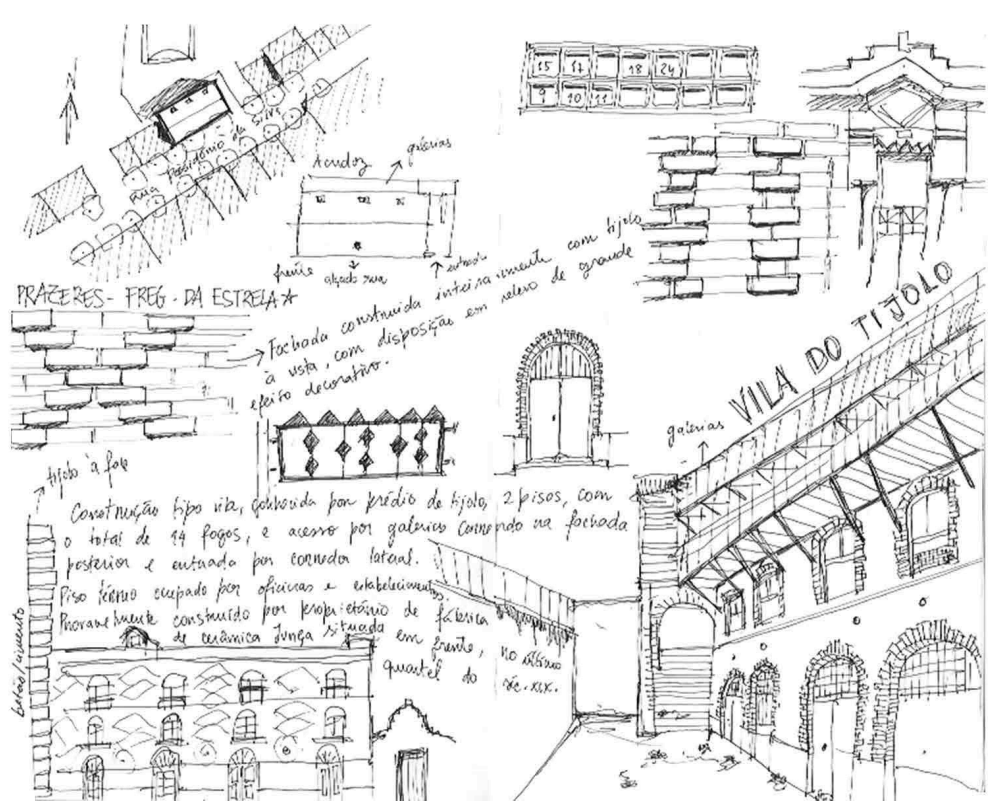 15 17 18 24
9 10 11
Rua Possidónio da Silva
galerias
frente
alçado rua
PRAZERES - FREG. DA ESTRELA
Fachada construida inteiramente com tijolo
à vista, com disposição em relevo de grande
efeito decorativo.
VILA DO TIJOLO
galerias
tijolo à face
Construção tipo vila, conhecida por prédio de tijolo, 2 pisos, com
o total de 14 fogos, e acesso por galerias correndo na fachada
posterior e entrada por corredor lateral.
Piso térreo ocupado por oficinas e estabelecimentos.
Provavelmente construido por proprietário de fábrica
de cerâmica Junça situada em frente, no último
quartel do séc. XIX.